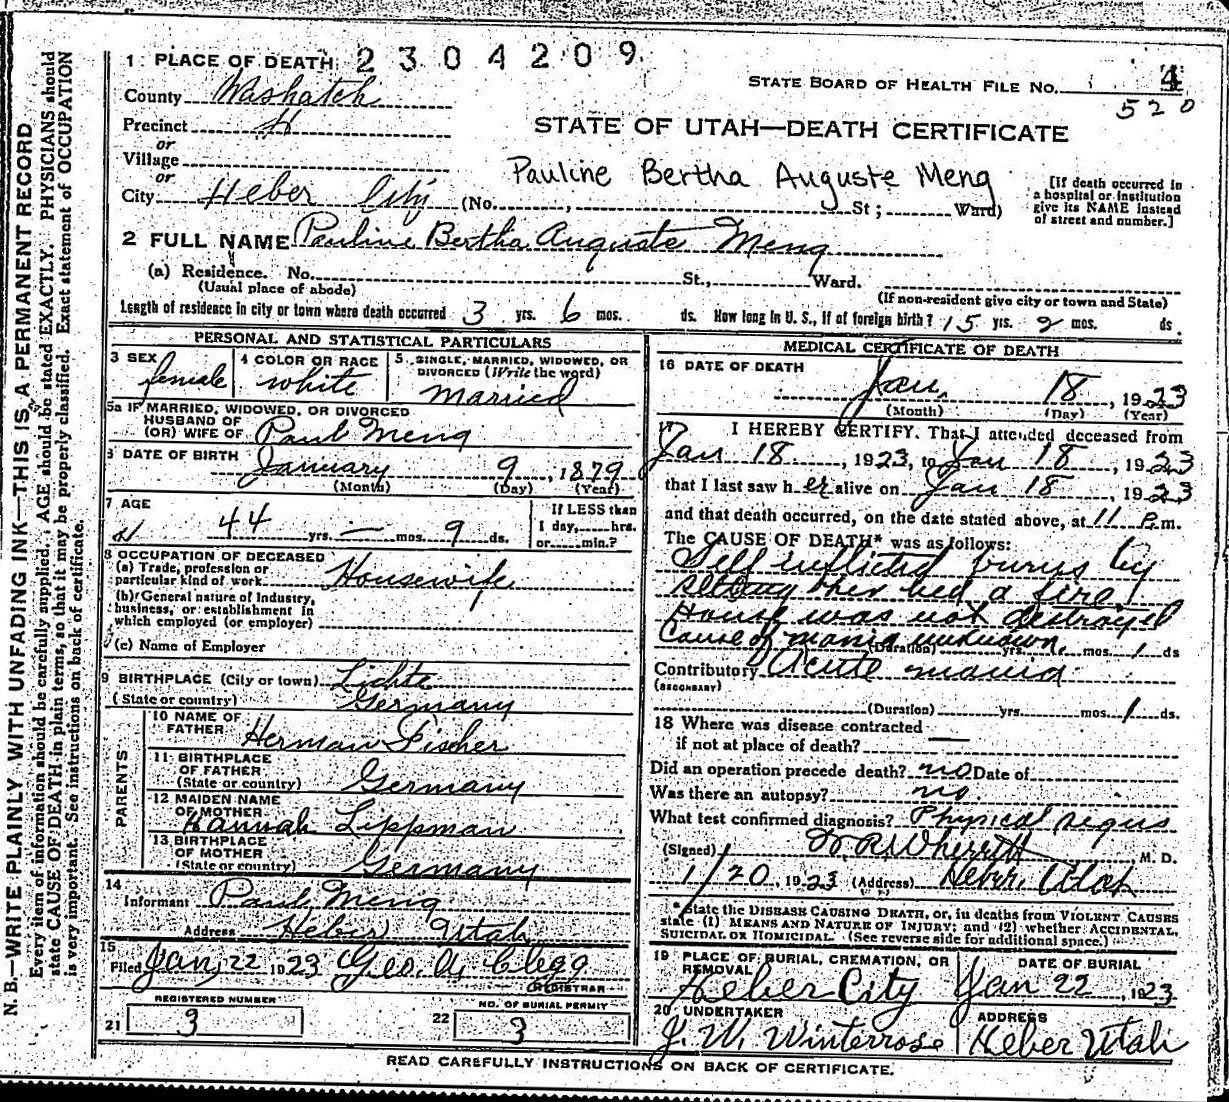 1 PLACE OF DEATH 2304209
STATE BOARD OF HEALTH FILE NO. 4
520
County Washatch
Precinct H
or
Village
or
City Heber City (No. , St; Ward)
STATE OF UTAH—DEATH CERTIFICATE
Pauline Bertha Auguste Meng
[If death occurred in
a hospital or institution
give its NAME instead
of street and number.]
2 FULL NAME Pauline Bertha Auguste Meng
(a) Residence. No. St., Ward.
(Usual place of abode) (If non-resident give city or town and State)
Length of residence in city or town where death occurred 3 yrs. 6 mos. ds. How long in U. S., if of foreign birth? 15 yrs. 2 mos. ds.
PERSONAL AND STATISTICAL PARTICULARS
3 SEX female
4 COLOR OR RACE white
5 SINGLE, MARRIED, WIDOWED, OR
DIVORCED (Write the word)
married
5a IF MARRIED, WIDOWED, OR DIVORCED
HUSBAND OF
(OR) WIFE OF Paul Meng
6 DATE OF BIRTH January 9, 1879
(Month) (Day) (Year)
7 AGE
44 yrs. — mos. 9 ds.
If LESS than
1 day, hrs.
or min.?
8 OCCUPATION OF DECEASED
(a) Trade, profession or
particular kind of work Housewife
(b) General nature of Industry,
business, or establishment in
which employed (or employer)
(c) Name of Employer
9 BIRTHPLACE (City or town) Lichte
(State or country) Germany
PARENTS
10 NAME OF
FATHER Herman Fischer
11 BIRTHPLACE
OF FATHER
(State or country) Germany
12 MAIDEN NAME
OF MOTHER
Hannah Lippman
13 BIRTHPLACE
OF MOTHER
(State or country) Germany
14
Informant Paul Meng
Address Heber Utah
15
Filed Jan, 22 1923 Geo. A. Clegg
REGISTRAR
REGISTERED NUMBER
21 3
NO. OF BURIAL PERMIT
22 3
MEDICAL CERTIFICATE OF DEATH
16 DATE OF DEATH
Jan, 18, 1923
(Month) (Day) (Year)
17 I HEREBY CERTIFY. That I attended deceased from
Jan 18, 1923, to Jan 18, 1923
that I last saw her alive on Jan 18, 1923
and that death occurred, on the date stated above, at 11 P.m.
The CAUSE OF DEATH* was as follows:
Self inflicted burns by
setting her bed a fire!
House was not destroyed
Cause of mania unknown.
(Duration) yrs. mos. 1 ds
Contributory Acute mania
(SECONDARY)
(Duration) yrs. mos. 1 ds.
18 Where was disease contracted
if not at place of death?
Did an operation precede death? no Date of
Was there an autopsy? no
What test confirmed diagnosis? Physical signs
(Signed) M. D.
1/20, 1923 (Address) Heber, Utah
* State the DISEASE CAUSING DEATH, or, in deaths from VIOLENT CAUSES
state (1) MEANS AND NATURE OF INJURY; and (2) whether ACCIDENTAL,
SUICIDAL OR HOMICIDAL. (See reverse side for additional space.)
19 PLACE OF BURIAL, CREMATION, OR
REMOVAL
Heber City
DATE OF BURIAL
Jan 22, 1923
20 UNDERTAKER
J. W. Winterrose
ADDRESS
Heber Utah
READ CAREFULLY INSTRUCTIONS ON BACK OF CERTIFICATE.
N. B.—WRITE PLAINLY WITH UNFADING INK—THIS IS A PERMANENT RECORD
Every item of information should be carefully supplied. AGE should be stated EXACTLY. PHYSICIANS should
state CAUSE OF DEATH in plain terms, so that it may be properly classified. Exact statement of OCCUPATION
is very important. See instructions on back of certificate.